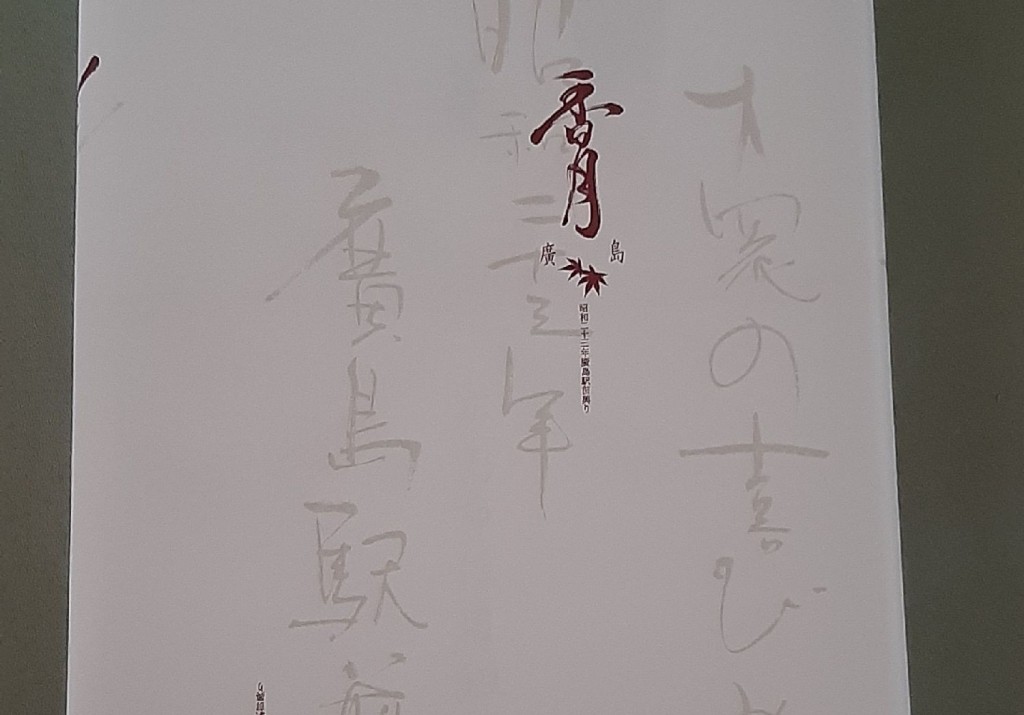 才覚の喜び
昭和二十三年
廣島駅前
香月
廣島
昭和二十三年廣島駅前興り